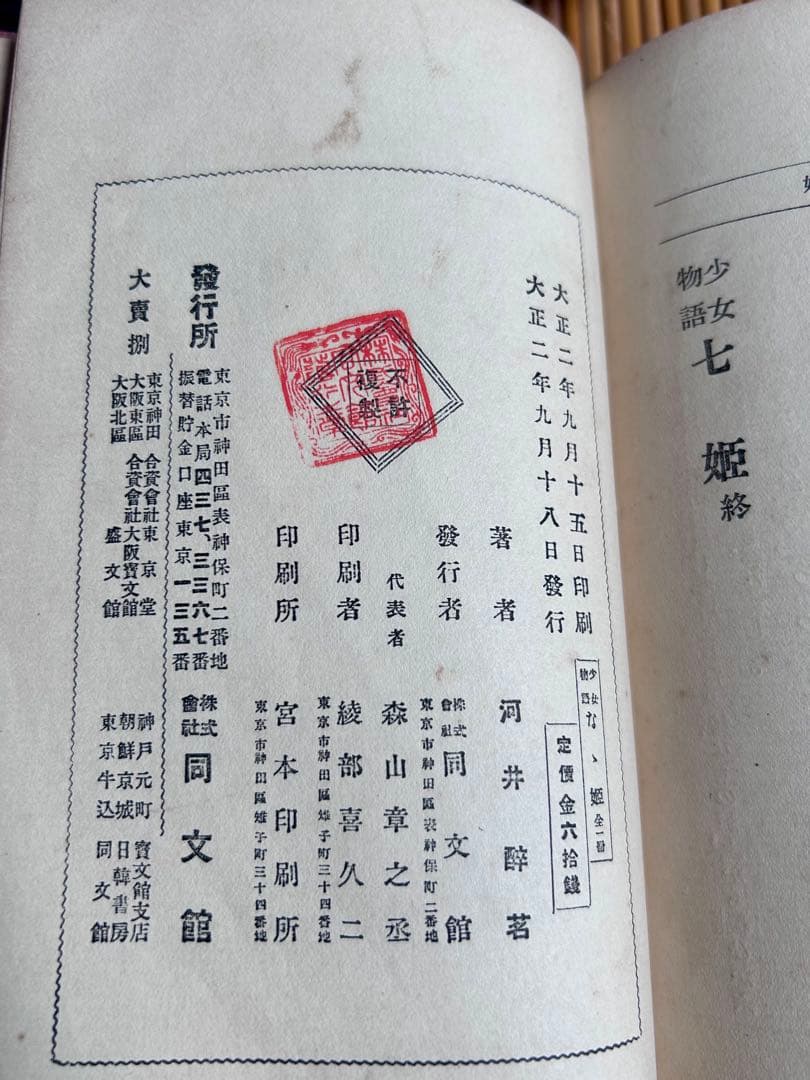 少女
物語
七姫 終
大正二年九月十五日印刷
大正二年九月十八日發行
少女
物語
なゝ姫 全一冊
定價金六拾錢
不許
複製
著者 河井醉茗
發行者 株式
會社 同文館
東京市神田區表神保町二番地
代表者 森山章之丞
印刷者 綾部喜久二
東京市神田區雉子町三十四番地
印刷所 宮本印刷所
東京市神田區雉子町三十四番地
發行所
東京市神田區表神保町二番地
電話本局四三七、三三六七番
振替貯金口座東京一三五番
株式
會社 同文館
大賣捌
東京神田 合資會社東京堂
大阪東區 合資會社大阪寶文館
大阪北區 盛文館
神戸元町 寶文館支店
朝鮮京城 日韓書房
東京牛込 同文館